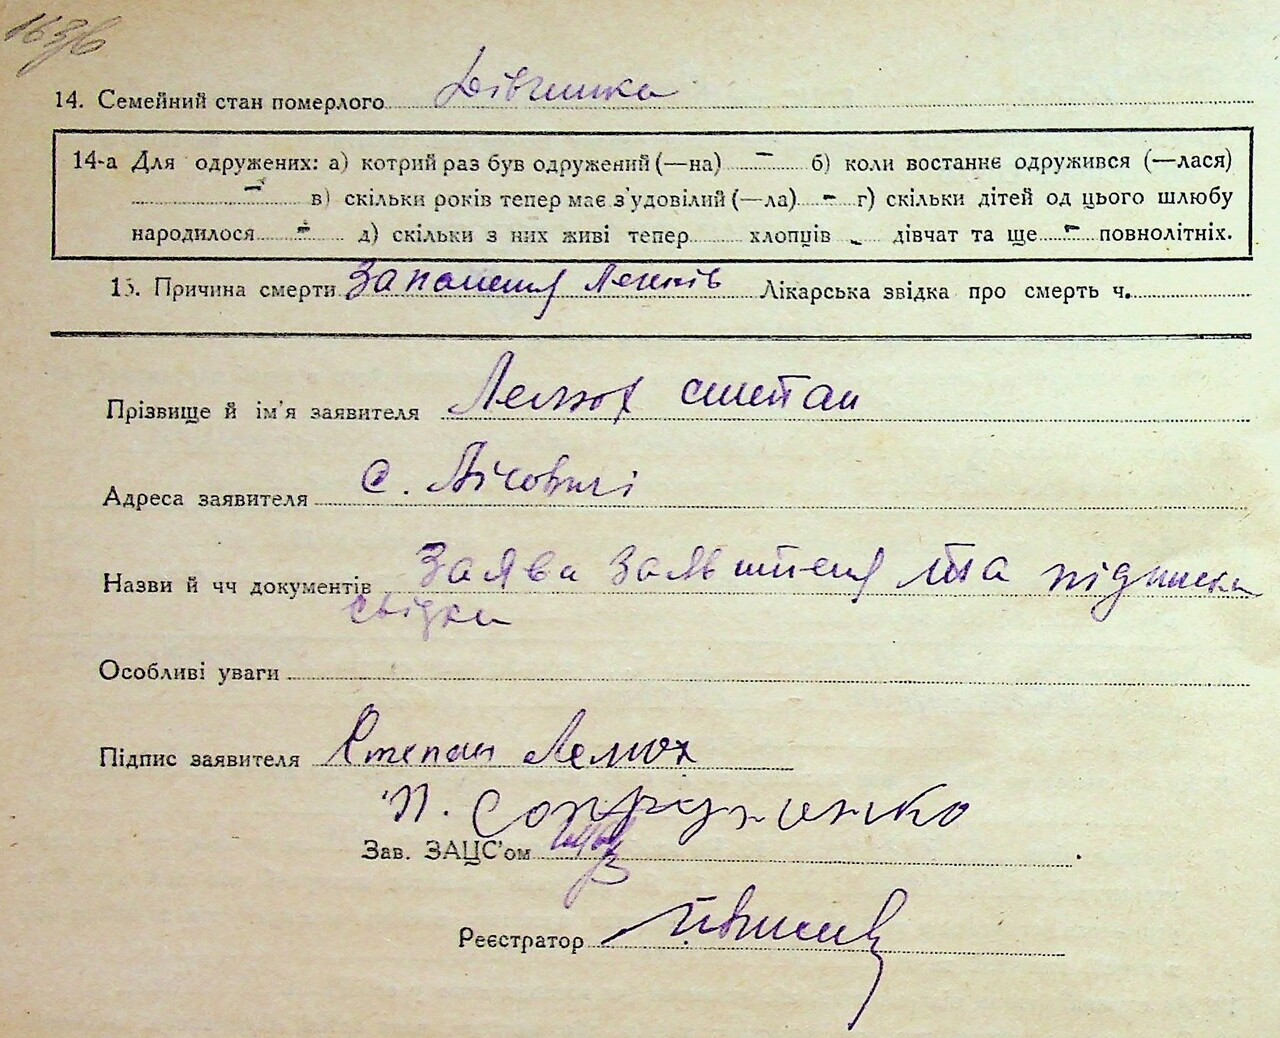 163/в
14. Семейний стан померлого Дівчинка
14-а Для одружених: а) котрий раз був одружений (—на) — б) коли востаннє одружився (—лася)
— в) скільки років тепер має з'удовілий (—ла) — г) скільки дітей од цього шлюбу
народилося — д) скільки з них живі тепер хлопців — дівчат та ще — повнолітніх.
15. Причина смерти Запалення Легенів Лікарська звідка про смерть ч.
Прізвище й ім'я заявителя Лемюх Степан
Адреса заявителя с. Лісовичі
Назви й чч документів Заява Заявителя та підписка
свідки
Особливі уваги
Підпис заявителя Степан Лемюх
П. Супруненко
Зав. ЗАЦС'ом
Реєстратор